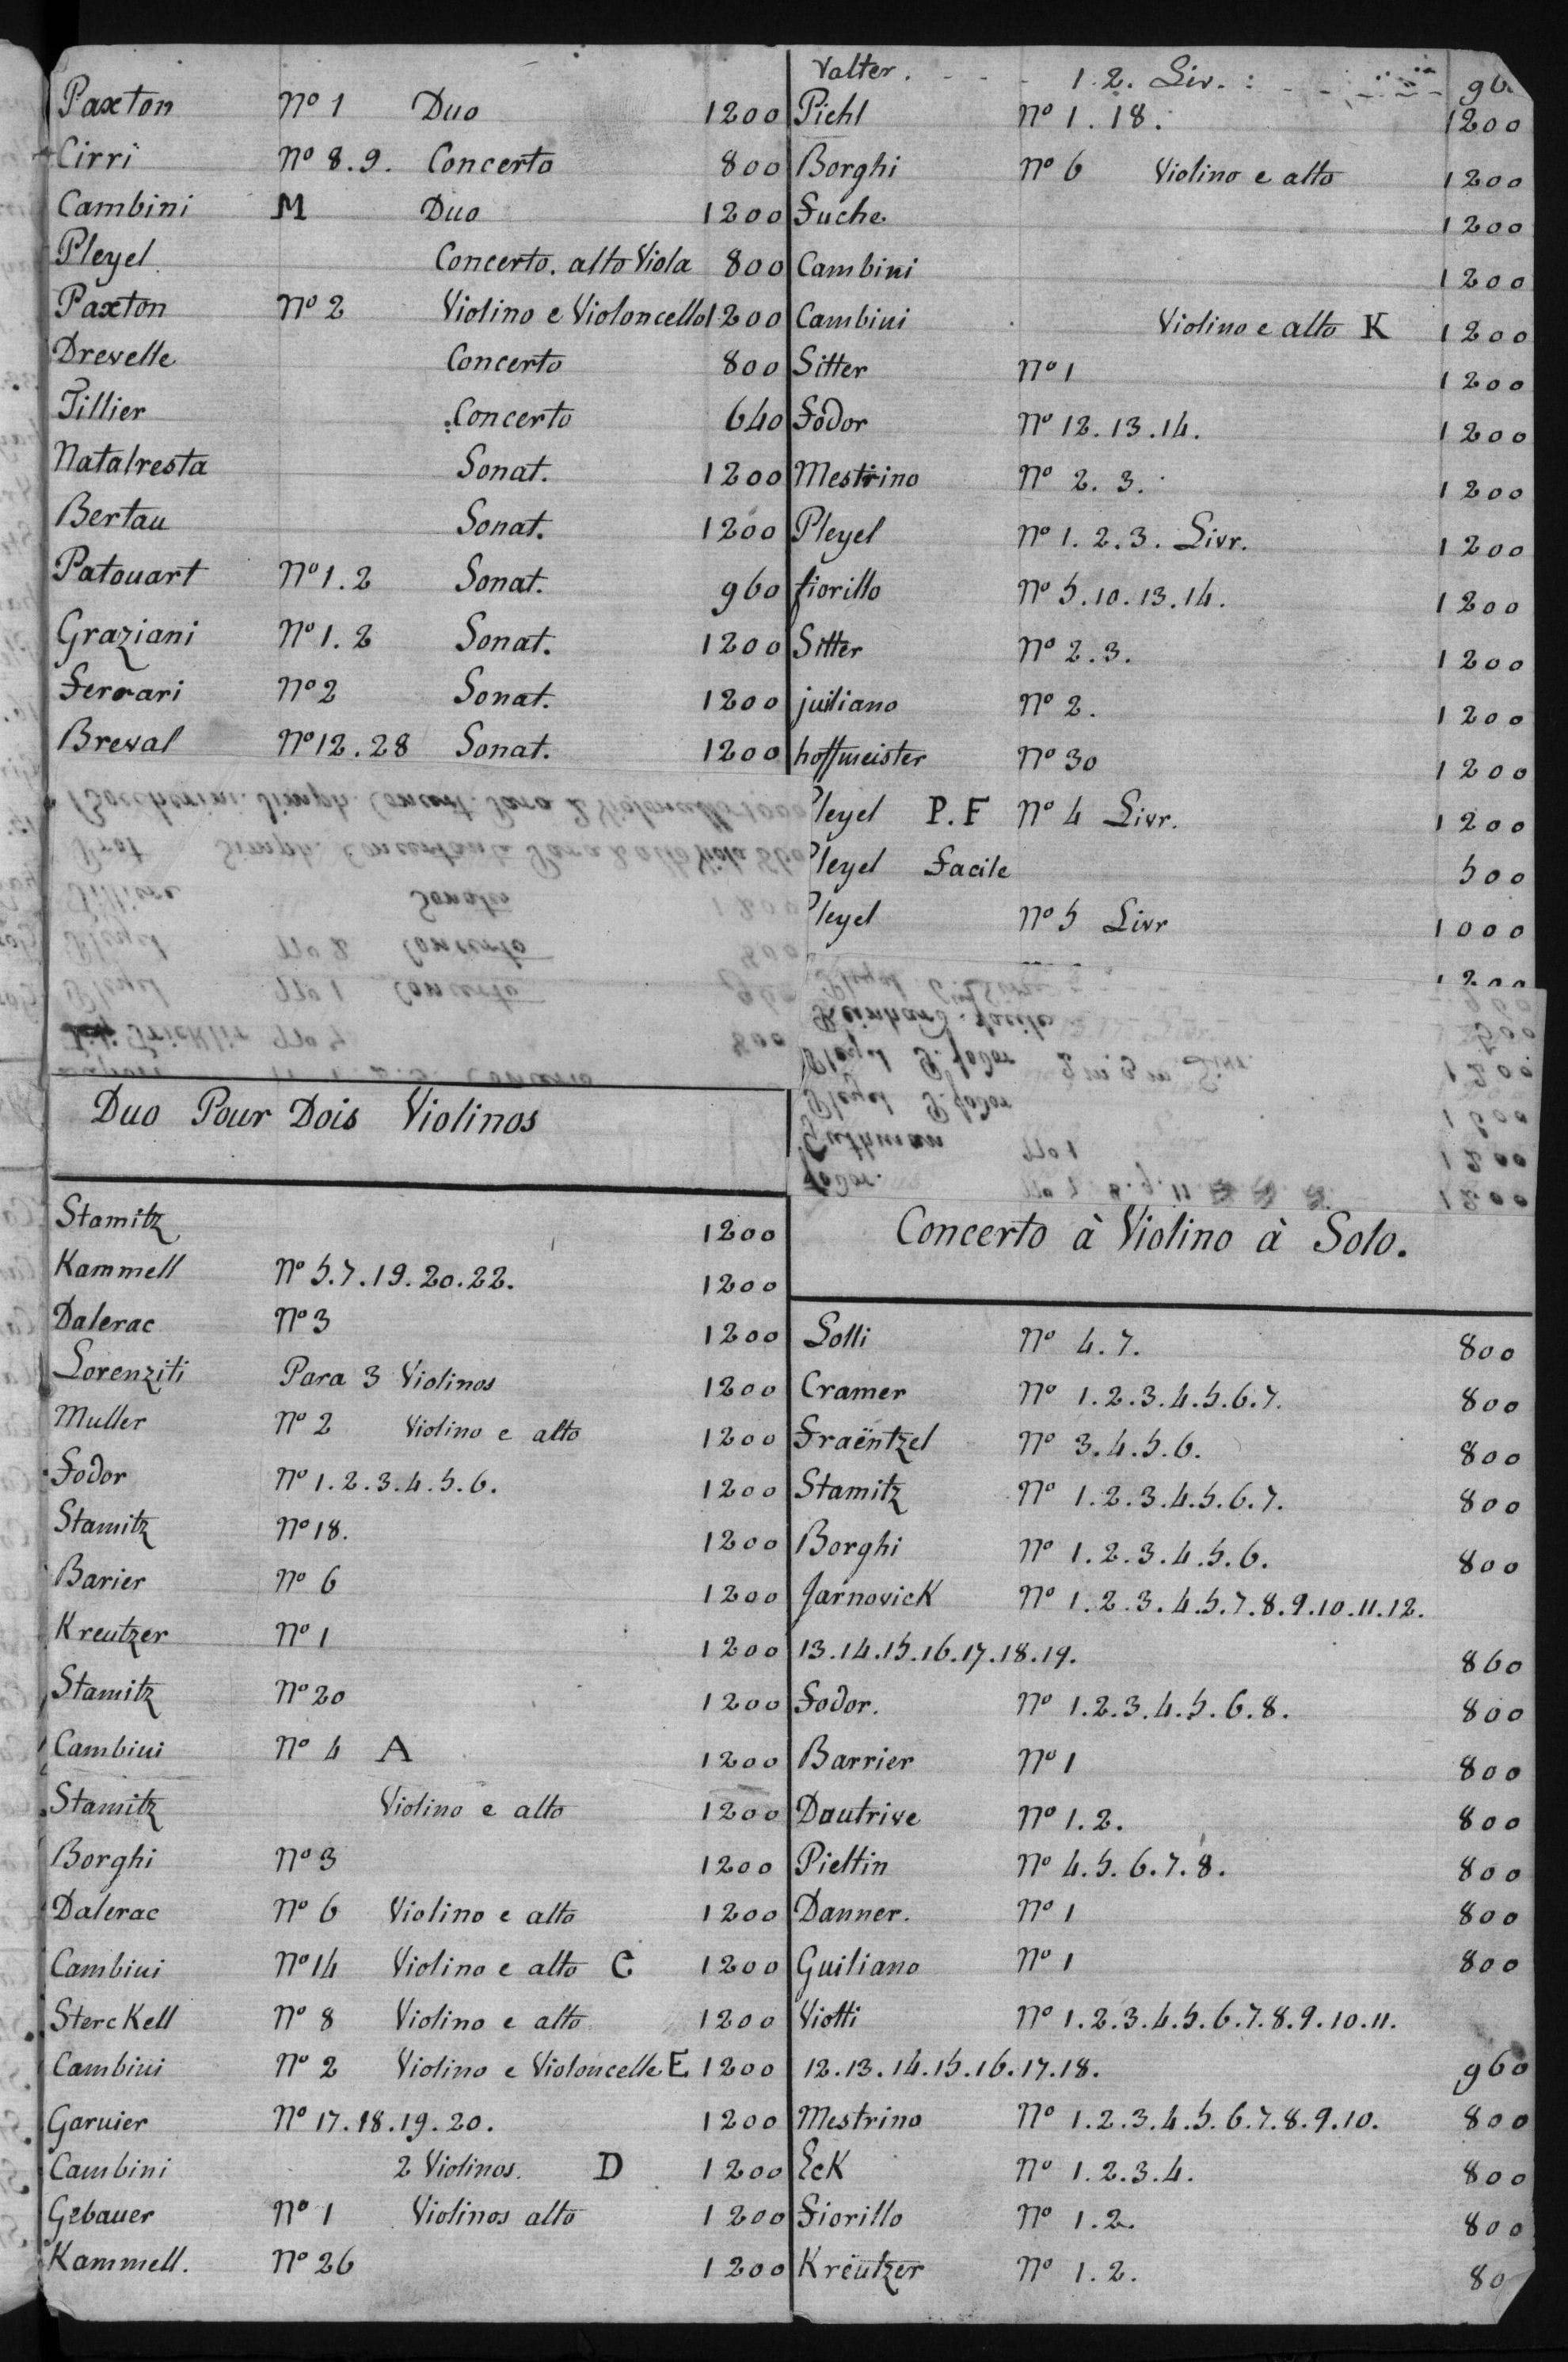 Paxton Nº 1 Duo 1200
Cirri Nº 8.9. Concerto 800
Cambini M Duo 1200
Pleyel Concerto. alto Viola 800
Paxton Nº 2 Violino e Violoncello 1200
Drevelle Concerto 800
Tillier Concerto 640
Natalresta Sonat. 1200
Bertau Sonat. 1200
Patouart Nº 1.2 Sonat. 960
Graziani Nº 1.2 Sonat. 1200
Ferrari Nº 2 Sonat. 1200
Breval Nº 12.28 Sonat. 1200
Duo Pour Dois Violinos
Stamitz 1200
Kammell Nº 5.7.19.20.22. 1200
Dalerac Nº 3 1200
Lorenziti Para 3 Violinos 1200
Muller Nº 2 Violino e alto 1200
Fodor Nº 1.2.3.4.5.6. 1200
Stamitz Nº 18. 1200
Barier Nº 6 1200
Kreutzer Nº 1 1200
Stamitz Nº 20 1200
Cambini Nº 4 A 1200
Stamitz Violino e alto 1200
Borghi Nº 3 1200
Dalerac Nº 6 Violino e alto 1200
Cambini Nº 14 Violino e alto C 1200
StercKell Nº 8 Violino e alto 1200
Cambini Nº 2 Violino e Violoncelle E 1200
Garnier Nº 17.18.19.20. 1200
Cambini 2 Violinos. D 1200
Gebauer Nº 1 Violinos alto 1200
Kammell. Nº 26 1200
Valter. 1.2. Liv. : 960
Pichl Nº 1.18. 1200
Borghi Nº 6 Violino e alto 1200
Fuche 1200
Cambini 1200
Cambini Violino e alto K 1200
Sitter Nº 1 1200
Fodor Nº 12.13.14. 1200
Mestrino Nº 2.3. 1200
Pleyel Nº 1.2.3. Livr. 1200
fiorillo Nº 5.10.13.14. 1200
Sitter Nº 2.3. 1200
juiliano Nº 2. 1200
hoffmeister Nº 30 1200
Pleyel P.F Nº 4 Livr. 1200
Pleyel Facile 500
Pleyel Nº 5 Livr 1000
Concerto à Violino à Solo.
Lolli Nº 4.7. 800
Cramer Nº 1.2.3.4.5.6.7. 800
Fraëntzel Nº 3.4.5.6. 800
Stamitz Nº 1.2.3.4.5.6.7. 800
Borghi Nº 1.2.3.4.5.6. 800
JarnovicK Nº 1.2.3.4.5.7.8.9.10.11.12.
13.14.15.16.17.18.19. 860
Fodor. Nº 1.2.3.4.5.6.8. 800
Barrier Nº 1 800
Dautrive Nº 1.2. 800
Pieltin Nº 4.5.6.7.8. 800
Danner. Nº 1 800
Guiliano Nº 1 800
Viotti Nº 1.2.3.4.5.6.7.8.9.10.11.
12.13.14.15.16.17.18. 960
Mestrino Nº 1.2.3.4.5.6.7.8.9.10. 800
EcK Nº 1.2.3.4. 800
Fiorillo Nº 1.2. 800
Krëutzer Nº 1.2. 80